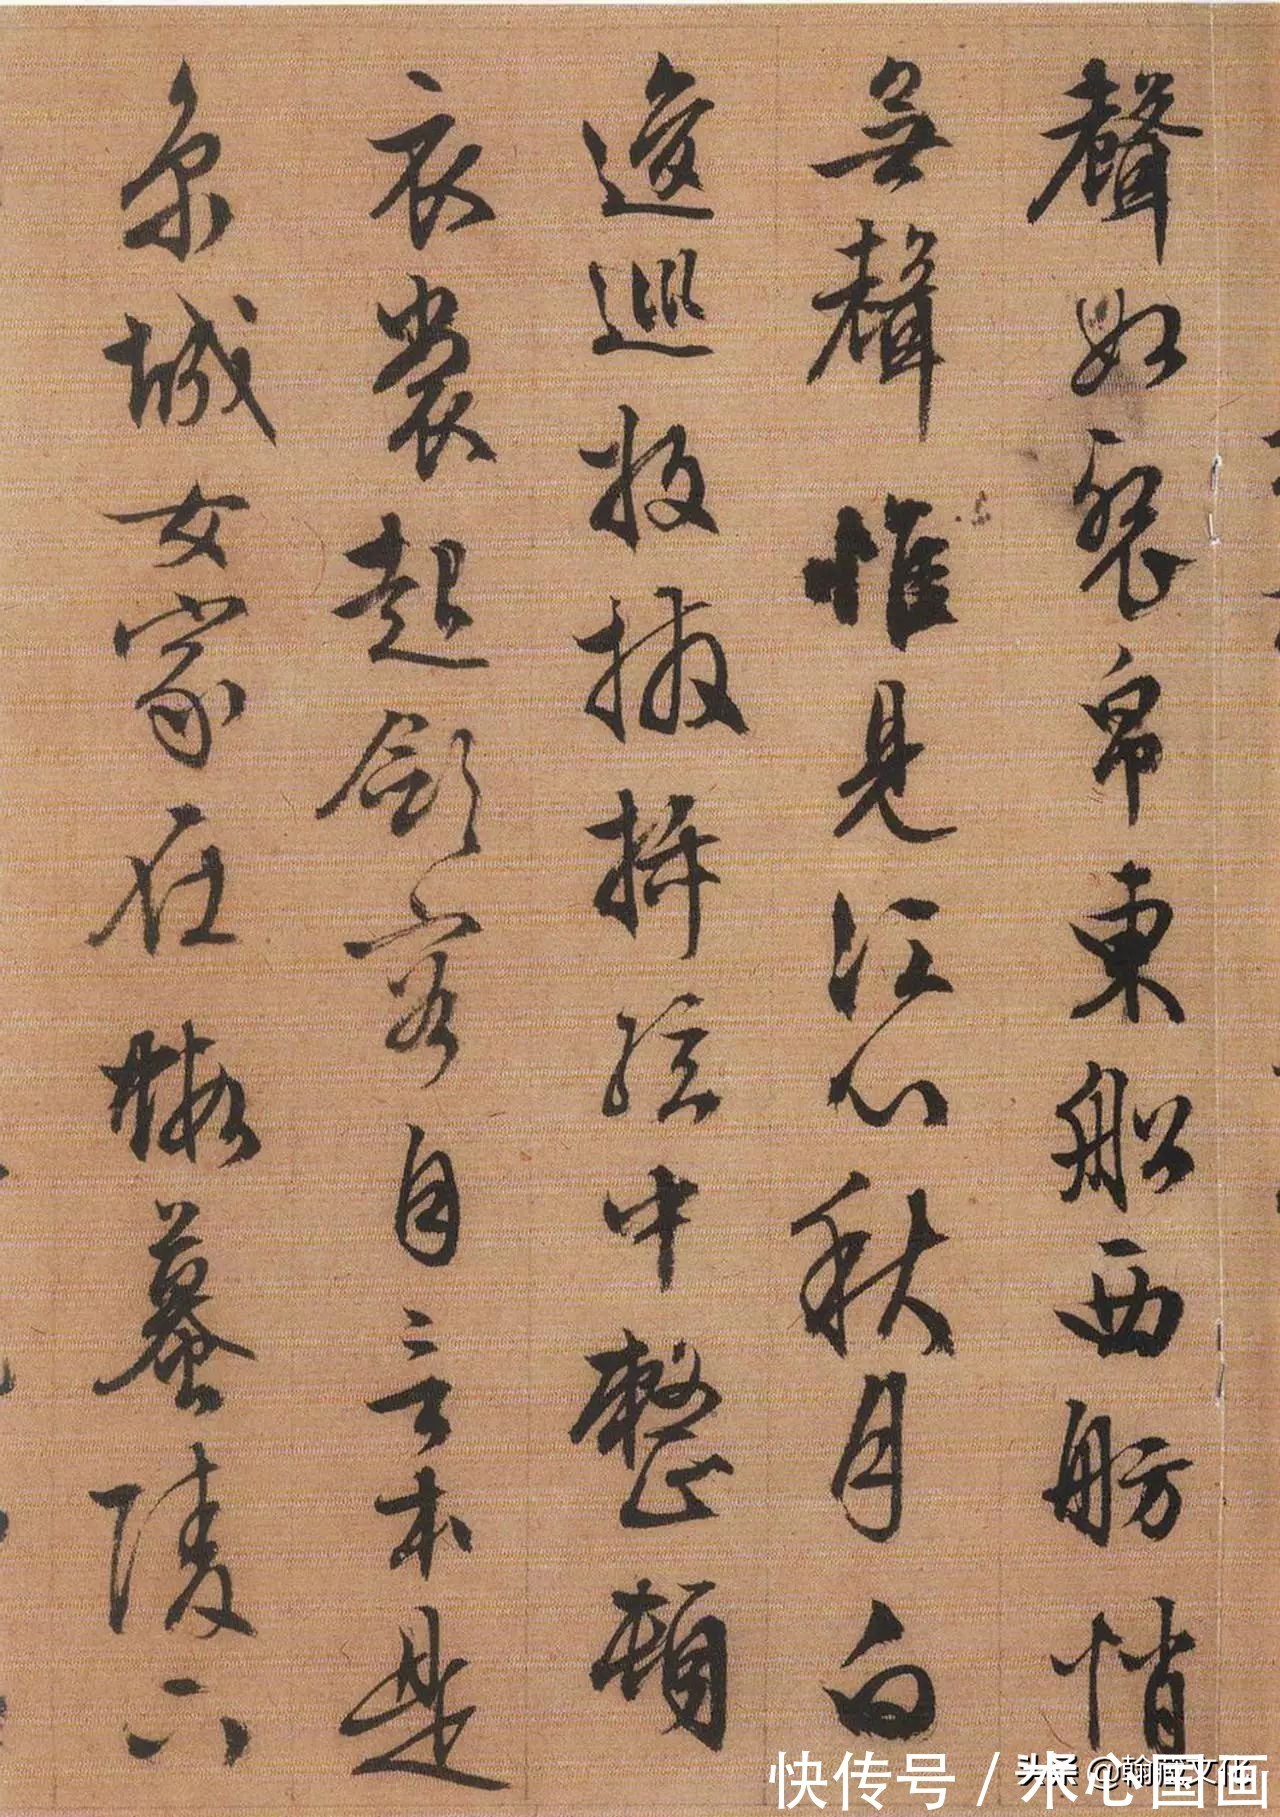 聲如裂帛東船西舫悄
無聲惟見江心秋月白
逡巡放撥插絃中整頓
衣裳起斂容自言本是
京城女家在蝦蟇陵六
头条 @翰藏文化
快传号 / 心国画